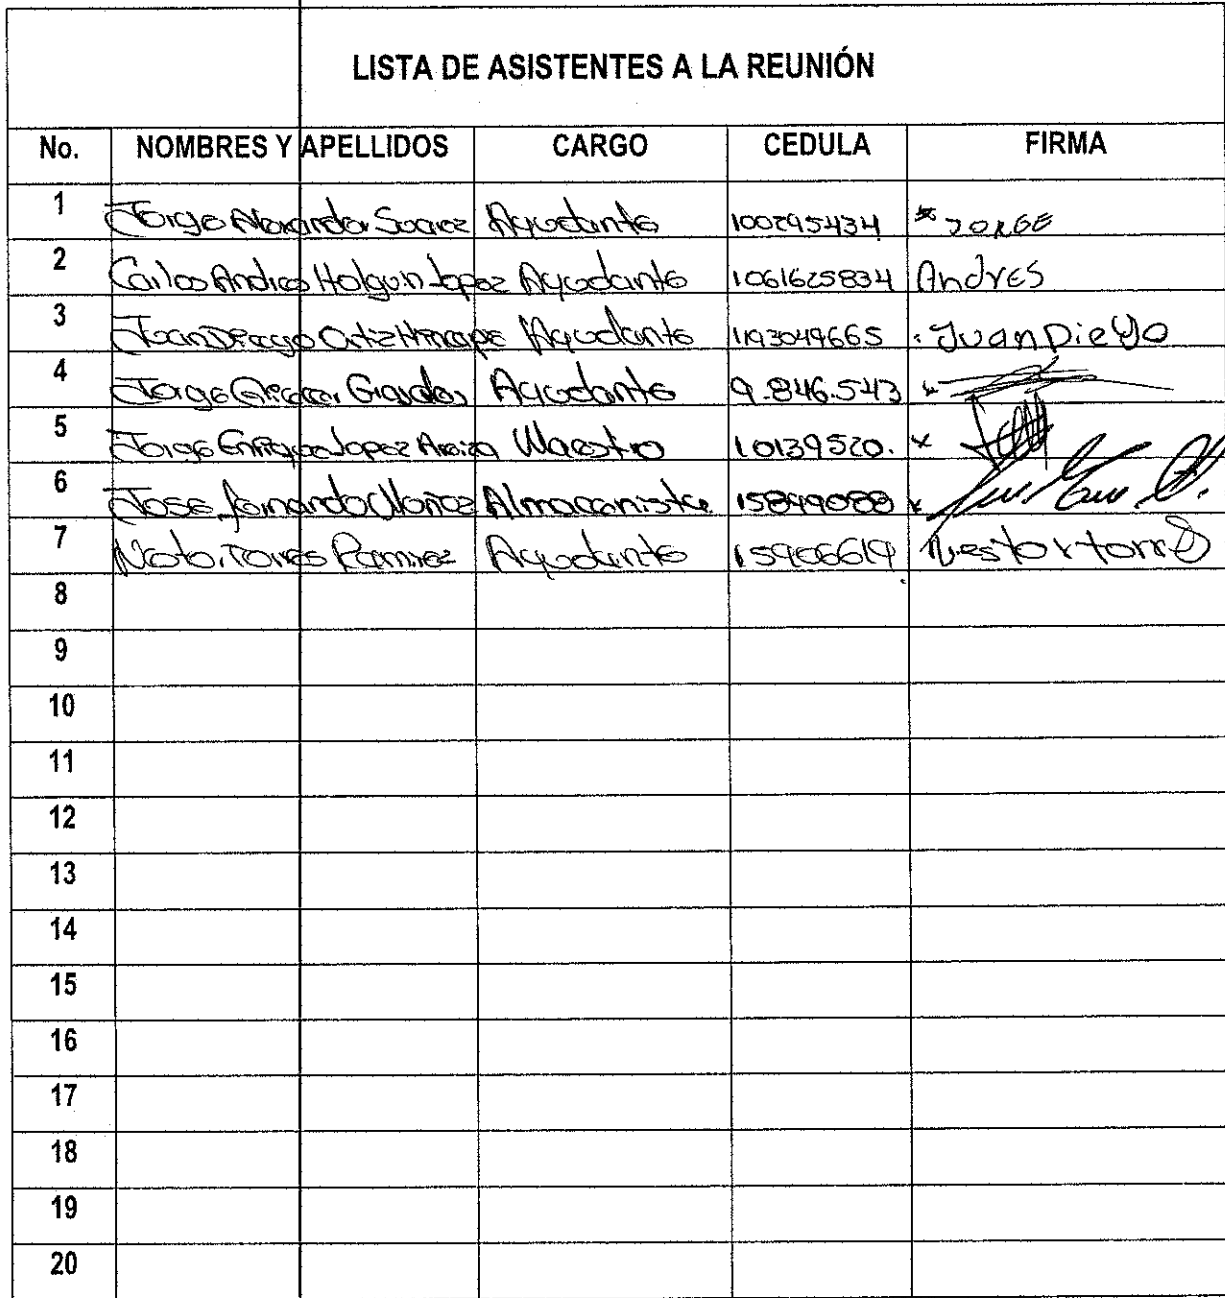 LISTA DE ASISTENTES A LA REUNIÓN
No. NOMBRES Y APELLIDOS CARGO CEDULA FIRMA
1 Jorge Alexander Suarez Ayudante 100295434 JORGE
2 Carlos Andres Holguin Lopez Ayudante 1061625834 Andres
3 Juan Diego Ortiz Ayudante 1193049665 Juan Diego
4 Jorge Ayudante 9.846.543
5 Jorge Enrique Lopez Maestro 10139520.
6 Jose Fernando Muñoz Almacenista 15899088
7 Torres Ramirez Ayudante 15906619 Nestor torres
8
9
10
11
12
13
14
15
16
17
18
19
20